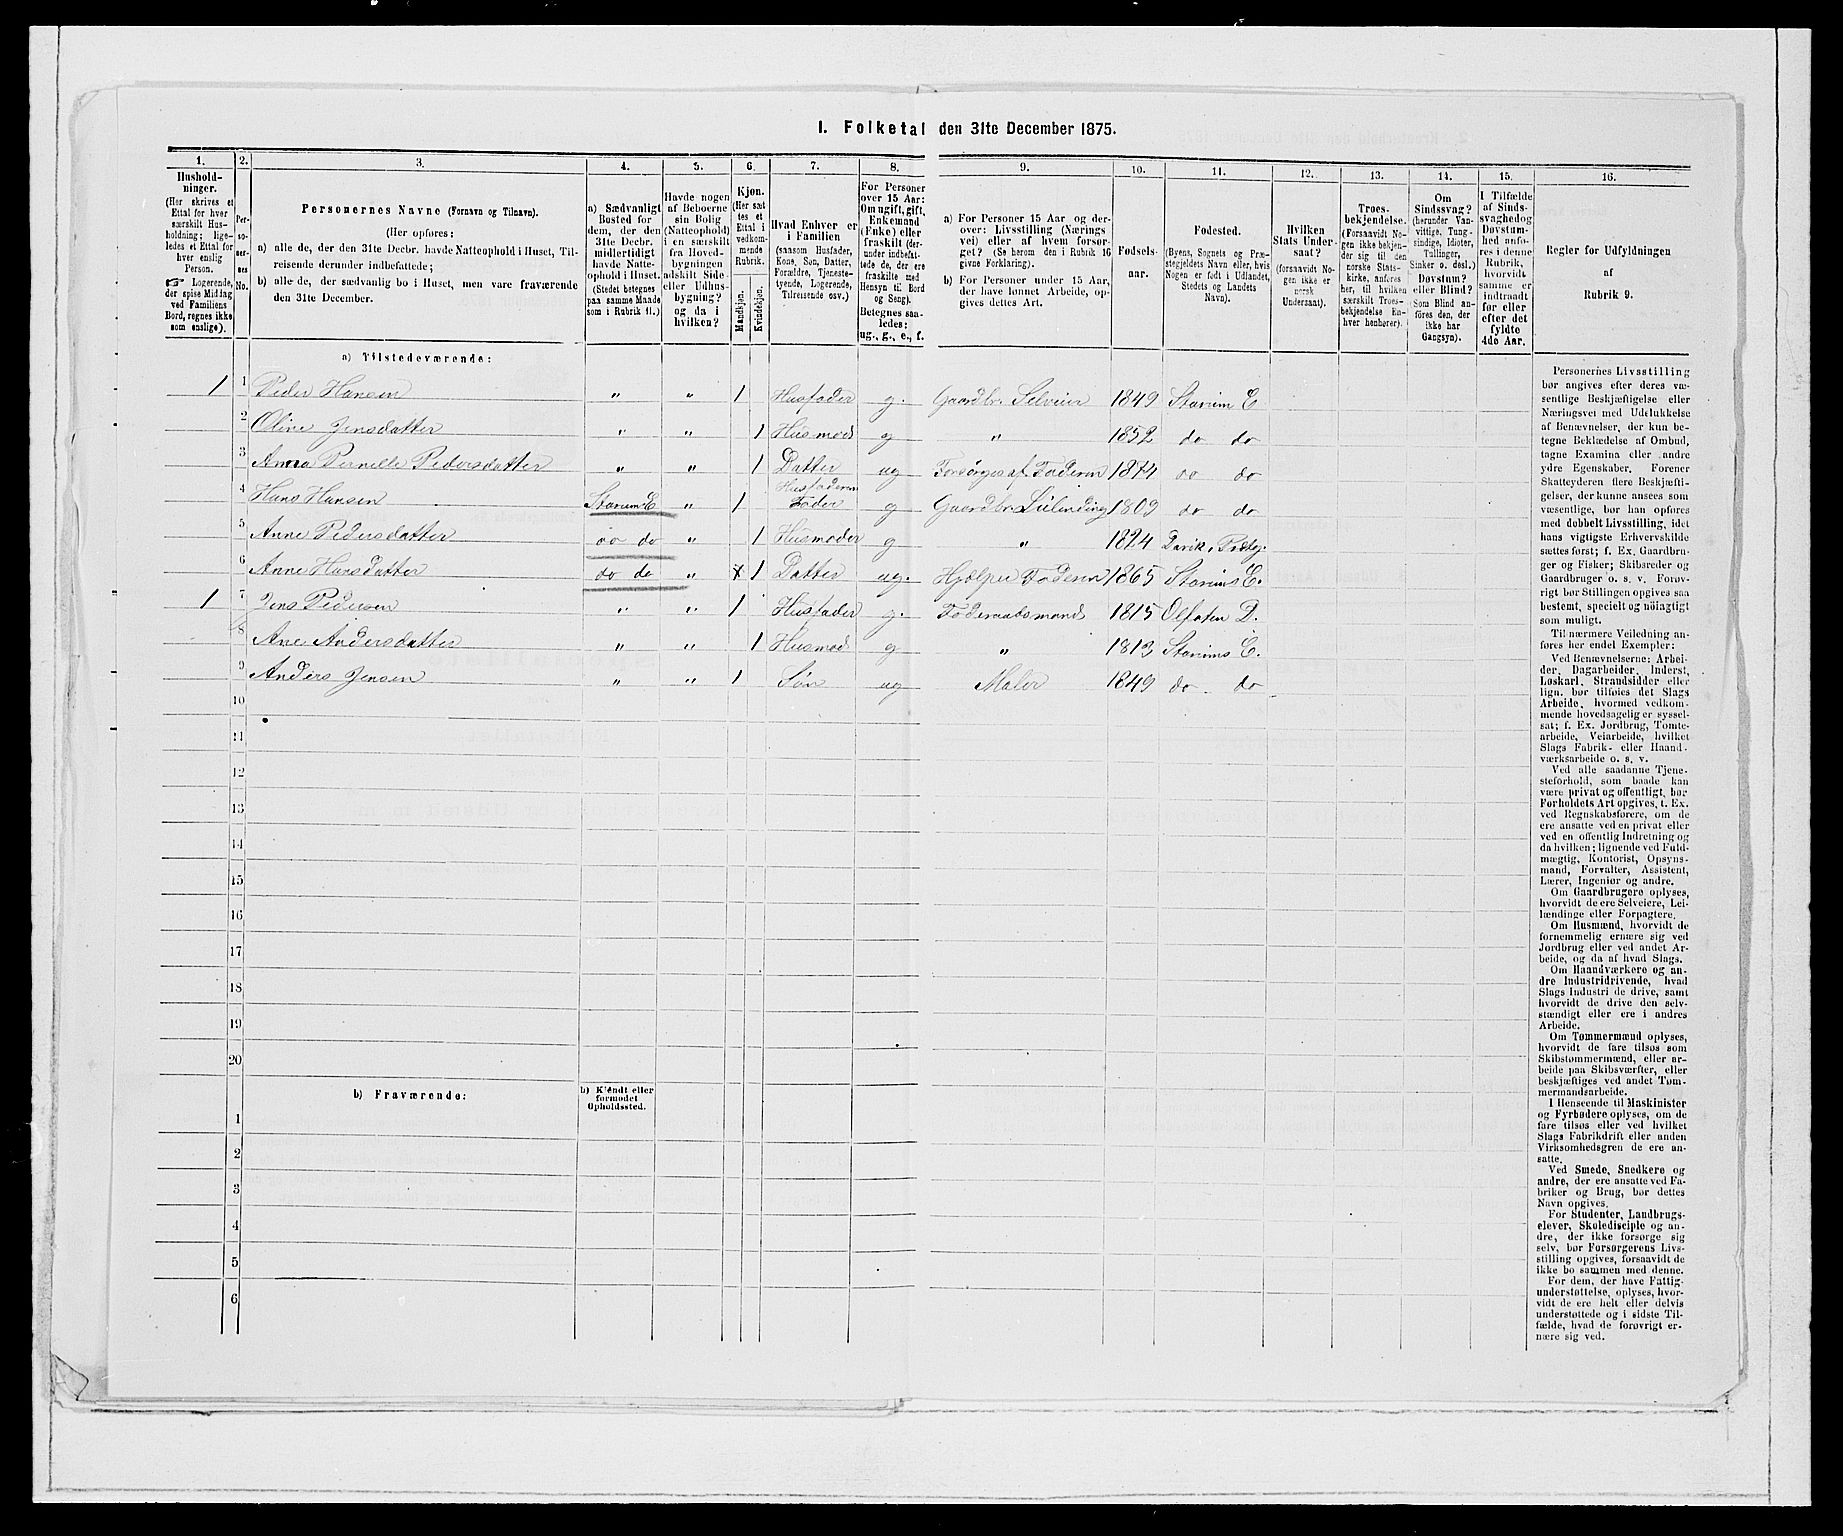 1. Folketal den 31te December 1875.
1.
2.
3.
4.
5.
6.
7.
8.
9.
10.
11.
12.
13.
14.
15.
16.
Hushold-
ninger.
(Her skrives et
Ettal for hver
særskilt Hus-
holdning; lige-
ledes et Ettal for
hver enslig
Person.
☞ Logerende,
der spise Middag
ved Familiens
Bord, regnes ikke
som enslige).
Per-
so-
ner-
nes
No.
Personernes Navne (Fornavn og Tilnavn).
(Her opføres:
a) alle de, der den 31te Decbr. havde Natteophold i Huset, Til-
reisende derunder indbefattede;
b) alle de, der sædvanlig bo i Huset, men vare fraværende
den 31te December.
a) Sædvanligt
Bosted for
dem, der den
31te Decbr.
midlertidigt
havde Natte-
ophold i Huset.
(Stedet betegnes
paa samme Maade
som i Rubrik 11.)
Havde nogen
af Beboerne
sin Bolig
(Natteophold)
i en særskilt
fra Hoved-
bygningen
adskilt Side-
eller Udhus-
bygning?
og da i
hvilken?
Kjøn.
(Her sæt-
tes et
Ettal i
vedkom-
mende
Rubrik.
Mandkjøn.
Kvindekjøn.
Hvad Enhver er
i Familien
(saasom Husfader,
Kone, Søn, Datter,
Forældre, Tjeneste-
tyende, Logerende,
Tilreisende osv.)
For Personer
over 15 Aar:
Om ugift, gift,
Enkemand
(Enke) eller
fraskilt (der-
under indbefat-
tede de, der ere
fraskilte med
Hensyn til Bord
og Seng).
Betegnes saa-
ledes:
ug., g., e., f.
a) For Personer 15 Aar og der-
over: Livsstilling (Nærings
vei) eller af hvem forsør-
get? (Se herom den i Rubrik 16
givne Forklaring).
b) For Personer under 15 Aar,
der have lønnet Arbeide, op-
gives dettes Art.
Fødsels-
aar.
Fødested.
(Byens, Sognets og Præ-
stegjeldets Navn eller, hvis
Nogen er født i Udlandet,
Stedets og Landets
Navn).
Hvilken
Stats Under-
saat?
(forsaavidt No-
gen ikke er
norsk
Undersaat).
Troes-
bekjendelse.
(Forsaavidt No-
gen ikke bekjen-
der sig til den
norske Stats-
kirke, anføres
her, til hvilken
særskilt Troes-
bekjendelse En-
hver henhører).
Om
Sindssvag?
(herunder Van-
vittige, Tung-
sindige, Idioter,
Tullinger,
Sinker o. desl.)
Døvstum?
eller Blind?
(Som Blind an-
føres den, der
ikke har
Gangsyn).
I Tilfælde
af Sinds-
svaghedog
Døvstum-
hed anfø-
res i denne
Rubrik,
hvorvidt
samme er
indtraadt
før eller
efter det
fyldte
4de Aar.
Regler for Udfyldningen
af
Rubrik 9.
a) Tilstedeværende:
1 1 Peder Hansen " " 1 Husfader g. Gaardbr. Selveier 1849 Starum E
2 Oline Jensdatter " " 1 Husmod g " 1852 do do
3 Anna Pernille Pedersdatter " " 1 Datter ug Forsørges af Faderen 1874 do do
4 Hans Hansen Starum E " 1 Husfaderen Fader g Gaardbr. Leilending 1809 do do
5 Anne Pedersdatter do do " 1 Husmoder g " 1824 Davik Prstgj.
6 Anne Hansdatter do do " 1 Datter ug. Hjælper Faderen 1865 Starums E.
1 7 Jens Pedersen " " 1 Husfader g. Føderaadsmand 1815 D.
8 Ane Andersdatter " " 1 Husmod g " 1813 Starums E.
9 Anders Jensen " " 1 Søn ug Maler 1849 do do
10
11
12
13
14
15
16
17
18
19
20
b) Fraværende:
b) Kjendt eller
formodet
Opholdssted.
1
2
3
4
5
6
Personernes Livsstilling
bør angives efter deres væ-
sentlige Beskjæftigelse eller
Næringsvei med Udelukkelse
af Benævnelser, der kun be-
tegne Beklædelse af Ombud,
tagne Examina eller andre
ydre Egenskaber. Forener
Skatteyderen flere Beskjæfti-
gelser, der kunne ansees som
væsentlige, bør han opføres
med dobbelt Livsstilling, idet
hans vigtigste Erhvervskilde
sættes først; f. Ex. Gaardbru-
ger og Fisker; Skibsreder og
Gaardbruger o. s. v. Forøv-
rigt bør Stillingen opgives saa
bestemt, specielt og nöiagtigt
som muligt.
Til nærmere Veiledning an-
føres her endel Exempler:
Ved Benævnelserne: Arbei-
der, Dagarbeider, Inderst,
Løskarl, Strandsidder eller
lign. bør tilføies det Slags
Arbeide, hvormed vedkom-
mende hovedsagelig er syssel-
sat; f. Ex. Jordbrug, Tomte-
arbeide, Veiarbeide, hvilket
Slags Fabrik- eller Haand-
værksarbeide o. s. v.
Ved alle saadanne Tjene-
steforhold, som baade kan
være privat og offentligt, bør
Forholdets Art opgives, t. Ex.
ved Regnskabsførere, om de
ere ansatte ved en privat eller
ved en offentlig Indretning og
da hvilken; lignende ved Fuld-
mægtig, Kontorist, Opsyns-
mand, Forvalter, Assistent,
Lærer, Ingeniør og andre.
Om Gaardbrugere oplyses,
hvorvidt de ere Selveiere, Lei-
lændinge eller Forpagtere.
Om Husmænd, hvorvidt de
fornemmelig ernære sig ved
Jordbrug eller ved andet Ar-
beide, og da af hvad Slags.
Om Haandværkere og an-
dre Industridrivende, hvad
Slags Industri de drive, samt
hvorvidt de drive den selv-
stændigt eller ere i andres
Arbeide.
Om Tømmermænd oplyses,
hvorvidt de fare tilsøs som
Skibstømmermænd, eller ar-
beide paa Skibsværfter, eller
beskjæftiges ved andet Tøm-
mermandsarbeide.
I Henseende til Maskinister
og Fyrbødere oplyses, om de
fare tilsøs eller ved hvilket
Slags Fabrikdrift eller anden
Virksomhedsgren de ere an-
satte.
Ved Smede, Snedkere og
andre, der ere ansatte ved Fa-
briker og Brug, bør dettes
Navn opgives.
For Studenter, Landbrugs-
elever, Skoledisciple og an-
dre, der ikke forsørge sig
selv, bør Forsørgerens Livs-
stilling opgives, forsaavidt de
ikke bo sammen med denne.
For dem, der have Fattig-
understøttelse, oplyses, hvor-
vidt de ere helt eller delvis
understøttede og i sidste Til-
fælde, hvad de forøvrigt er-
nære sig ved.